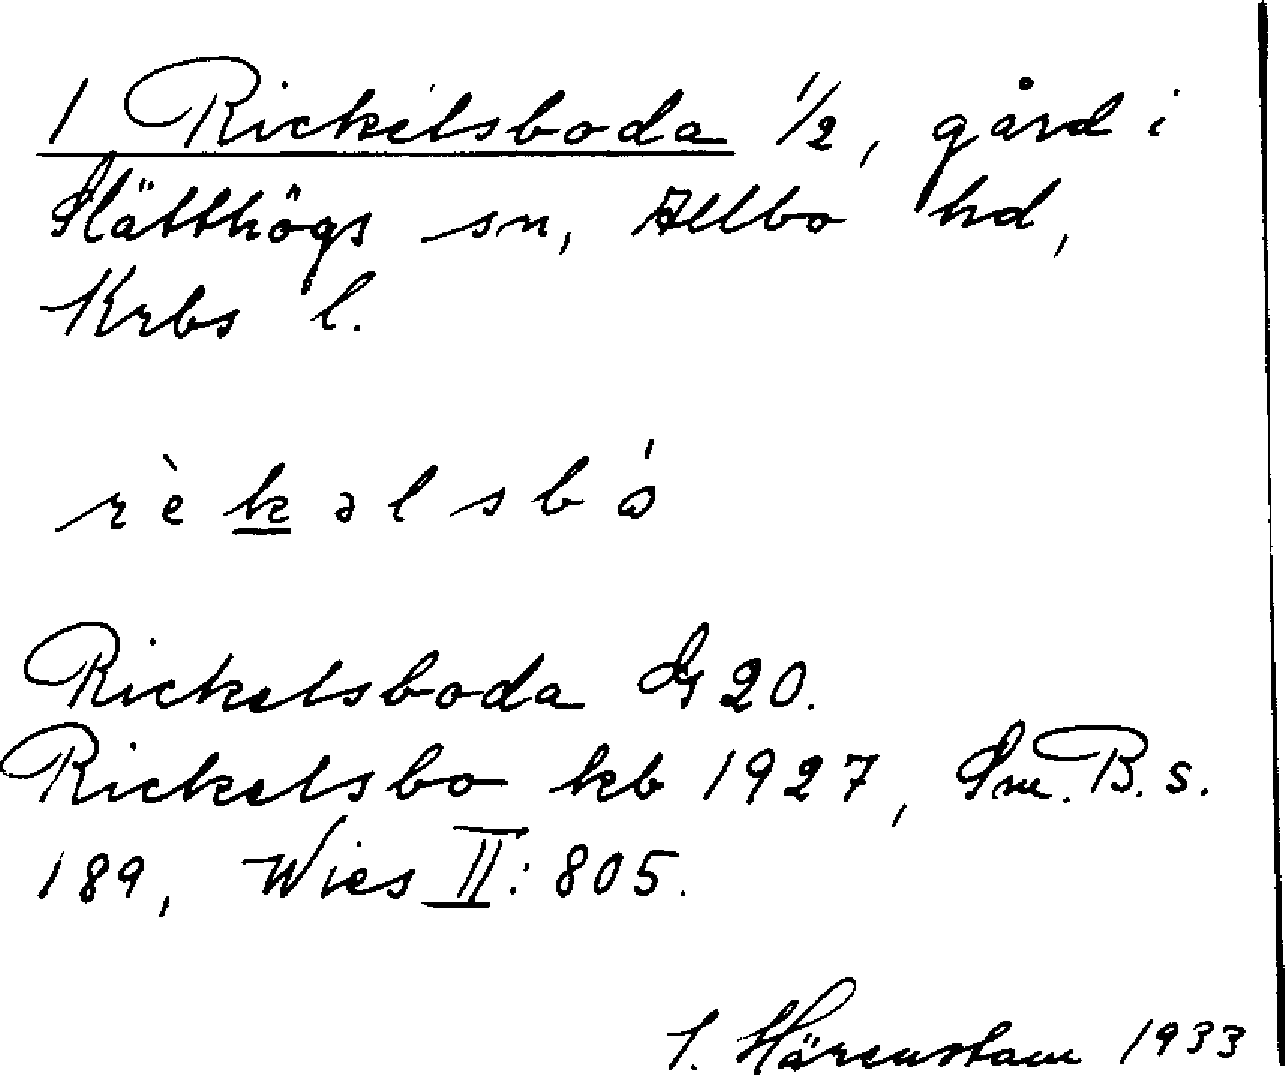 1 Rickelsboda 1/2, gård i
Slätthögs sn, Allbo hd,
Krbs l.
rèkəlsbó
Rickelsboda G 20.
Rickelsbo kb 1927, Sm. B. s.
189, Wies II: 805.
S. Härenstam 1933